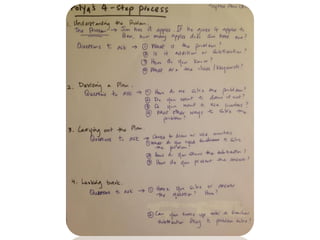 Polya's 4-step process
1. Understanding the Problem.
The Problem → Jim has 12 apples. If he gives 4 apples to
how many apples does Jim have now?
Questions to ask → ① What is the problem?
② Is it addition or subtraction?
③ How do you know?
④ What are the clues/keywords?
2. Devising a Plan.
Questions to ask → ① How do we solve the problem?
② Do you want to draw it out?
③ Do you want to use counters?
④ What other ways to solve the
problem?
3. Carrying out the Plan.
Questions to ask → Choose to draw or use counters
① What do you need to solve
the problem?
② How do you show the subtraction?
③ How do you present the answer?
4. Looking back.
Questions to ask → ① Have you solve or answer
the question? How?
② Can you make up
subtraction story to problem solve?